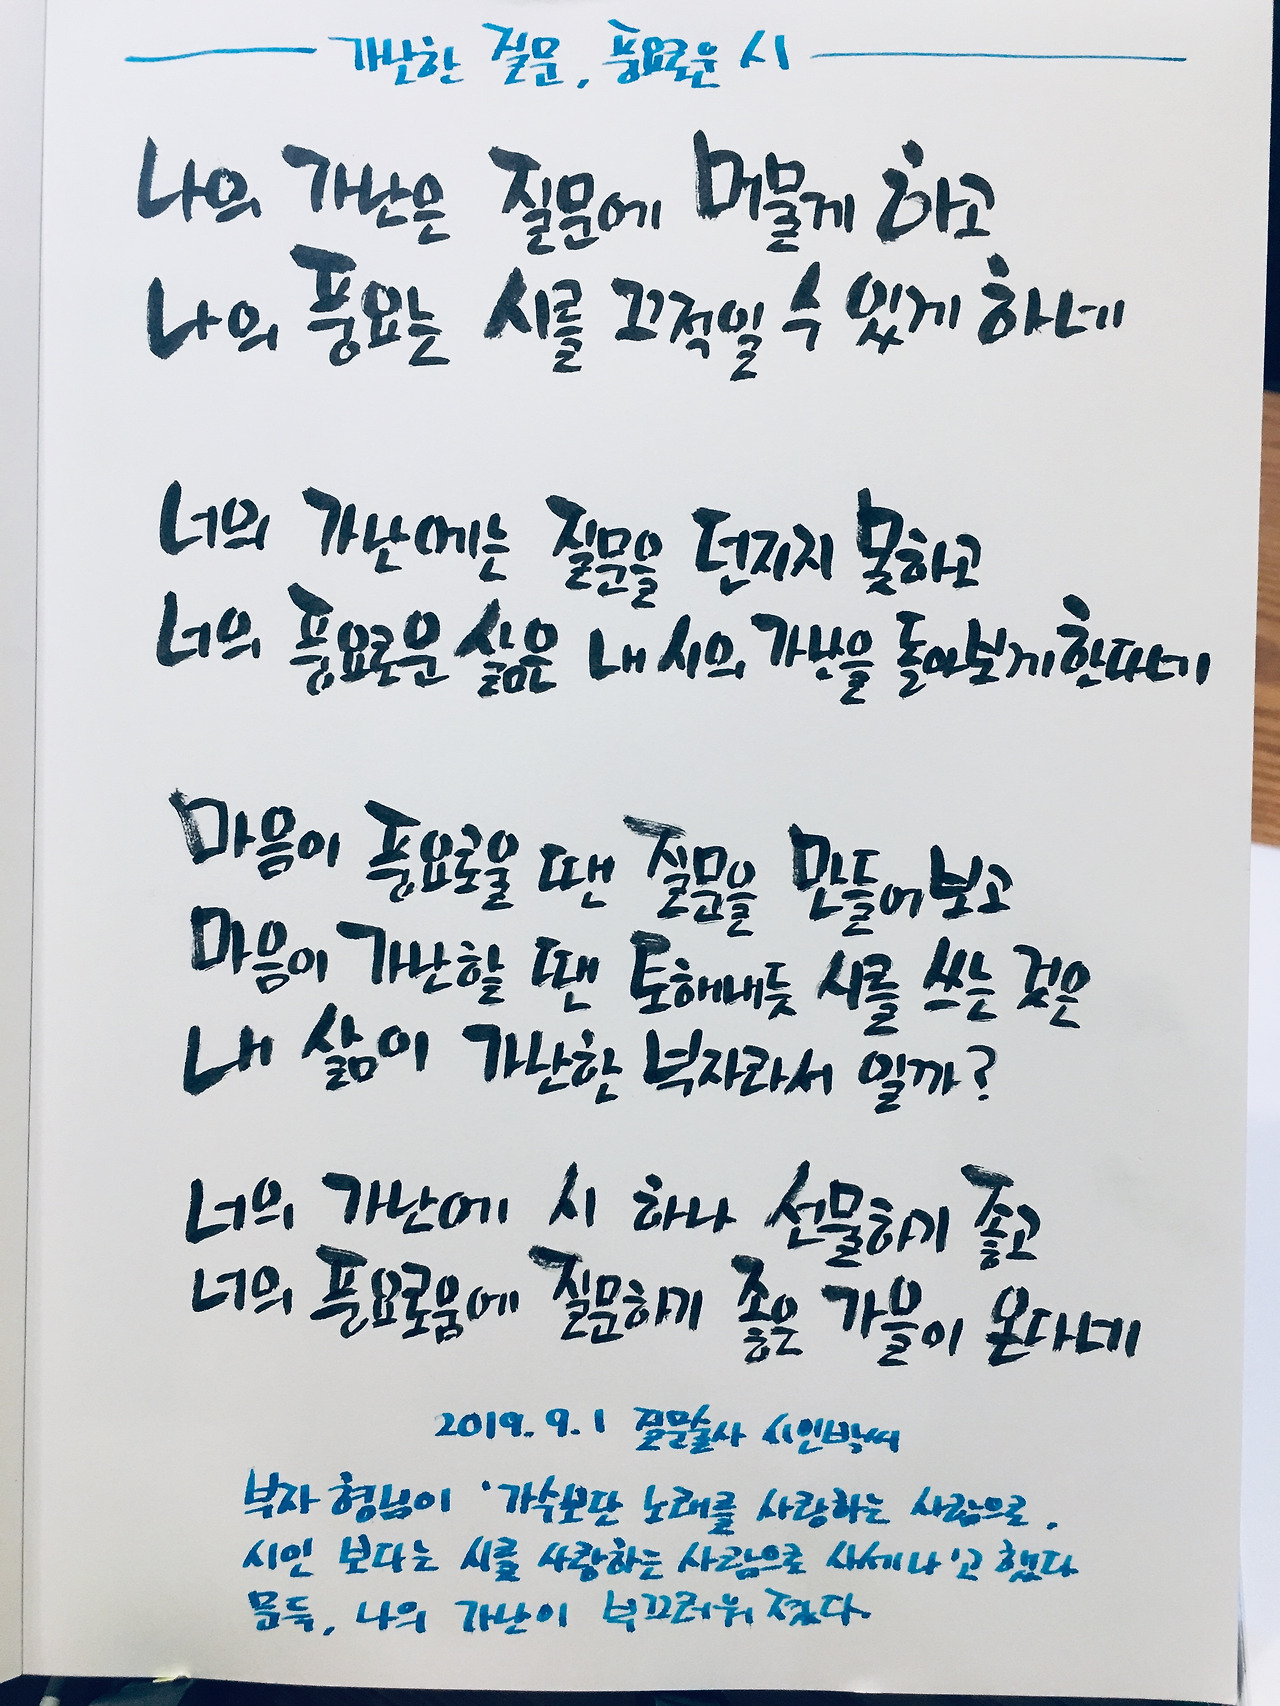 가난한 질문, 풍요로운 시
나의 가난은 질문에 머물게 하고
나의 풍요는 시를 끄적일 수 있게 하네
너의 가난에는 질문을 던지지 못하고
너의 풍요로운 삶은 내 시의 가난을 돌아보게 한다네
마음이 풍요로울 땐 질문을 만들어보고
마음이 가난할 땐 토해내듯 시를 쓰는 것은
내 삶이 가난한 부자라서 일까?
너의 가난에 시 하나 선물하기 좋고
너의 풍요로움에 질문하기 좋은 가을이 온다네
2019. 9. 1 질문술사 시인박씨
부자 형님이 '가수보단 노래를 사랑하는 사람으로,
시인 보다는 시를 사랑하는 사람으로 사세나'고 했다
문득, 나의 가난이 부끄러워졌다.